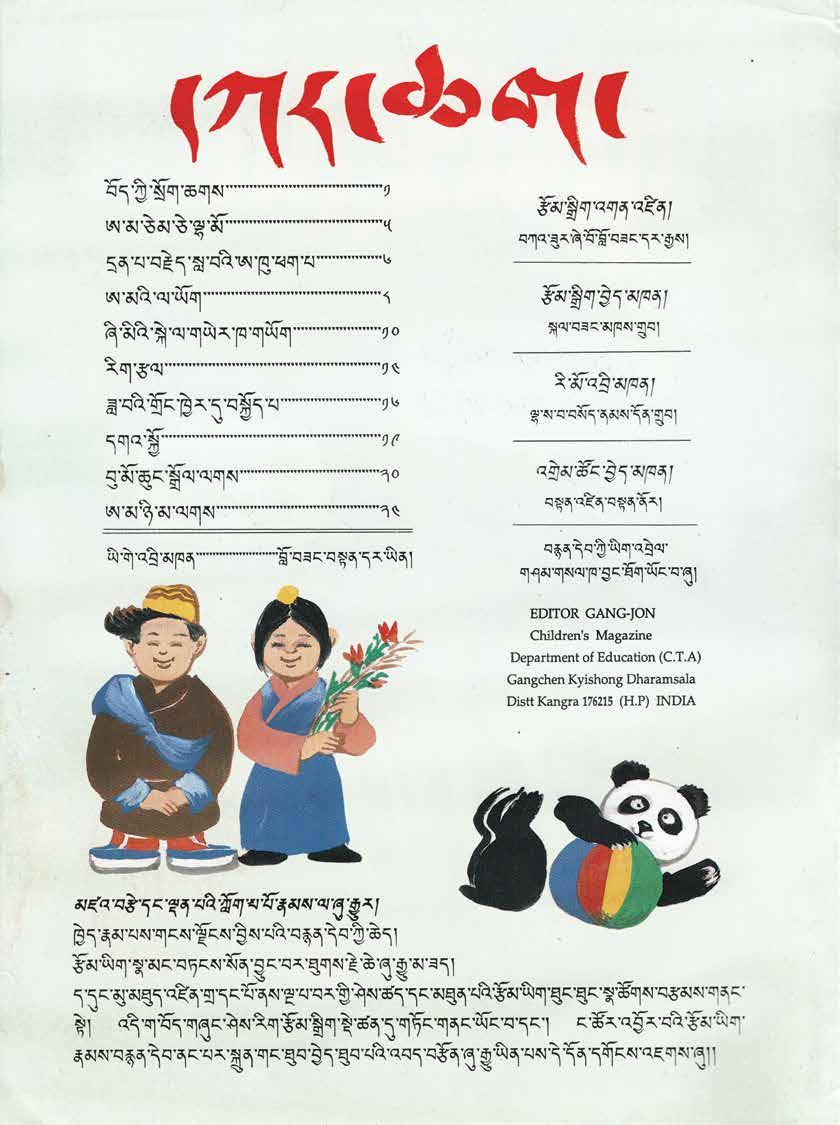 དཀར་ཆག
བོད་ཀྱི་སྲོག་ཆགས་་་་་་་་་་་་་་་་་་་་༡
ཨ་མ་ཅེམ་ཅེ་ལྷ་མོ་་་་་་་་་་་་་་་་་་་་༥
དྲན་པ་བརྗེད་སླ་བའི་ཨ་ཁུ་ཕག་པ་་་་་་་་་་་༦
ཨ་མའི་ལ་ཡོག་་་་་་་་་་་་་་་་་་་་༨
ཞི་མིའི་སྐེ་ལ་གཡེར་ཁ་གཡོག་་་་་་་་་་་་་༡༠
རིག་རྩལ་་་་་་་་་་་་་་་་་་་་་་་་༡༤
ཟླ་བའི་གྲོང་ཁྱེར་དུ་བསྐྱོད་པ་་་་་་་་་་་་་༡༦
དགའ་སྐྱོ་་་་་་་་་་་་་་་་་་་་་་་་༡༩
བུ་མོ་ཆུང་སྒྲོལ་ལགས་་་་་་་་་་་་་་་་་༢༠
ཨ་མ་ཉི་མ་ལགས་་་་་་་་་་་་་་་་་་་༢༤
ཡི་གེ་འབྲི་མཁན་་་་་་་་་་་་བློ་བཟང་བསྟན་དར་ཡིན།
རྩོམ་སྒྲིག་འགན་འཛིན།
བཀའ་ཟུར་ཞེ་བོ་བློ་བཟང་དར་རྒྱས།
རྩོམ་སྒྲིག་བྱེད་མཁན།
སྐལ་བཟང་མཁས་གྲུབ།
རི་མོ་འབྲི་མཁན།
ལྷ་ས་བ་བསོད་ནམས་དོན་གྲུབ།
འགྲེམ་ཚོང་བྱེད་མཁན།
བསྟན་འཛིན་བསྟན་ནོར།
བརྙན་དེབ་ཀྱི་ཡིག་འབྲེལ་
གཤམ་གསལ་ཁ་བྱང་ཐོག་ཡོང་བ་ཞུ།
EDITOR GANG-JON
Children's Magazine
Department of Education (C.T.A)
Gangchen Kyishong Dharamsala
Distt Kangra 176215 (H.P) INDIA
མཛའ་བརྩེ་དང་ལྡན་པའི་ཀློག་པ་པོ་རྣམས་ལ་ཞུ་རྒྱུར།
ཁྱེད་རྣམ་པས་གངས་ལྗོངས་བྱིས་པའི་བརྙན་དེབ་ཀྱི་ཆེད།
རྩོམ་ཡིག་སྣ་མང་བཏངས་སོན་བྱུང་བར་ཐུགས་རྗེ་ཆེ་ཞུ་རྒྱུ་མ་ཟད།
ད་དུང་མུ་མཐུད་འཛིན་གྲ་དང་པོ་ནས་ལྔ་པ་བར་གྱི་ཤེས་ཚད་དང་མཐུན་པའི་རྩོམ་ཡིག་ཐུང་ཐུང་སྣ་ཚོགས་བརྩམས་གནང་
སྟེ། འདི་ག་བོད་གཞུང་ཤེས་རིག་རྩོམ་སྒྲིག་སྡེ་ཚན་དུ་གཏོང་གནང་ཡོང་བ་དང་། ང་ཚོར་འབྱོར་བའི་རྩོམ་ཡིག་
རྣམས་བརྙན་དེབ་ནང་པར་སྐྲུན་གང་ཐུབ་བྱེད་ཐུབ་པའི་འབད་བརྩོན་ཞུ་རྒྱུ་ཡིན་པས་དེ་དོན་དགོངས་འཇགས་ཞུ།།